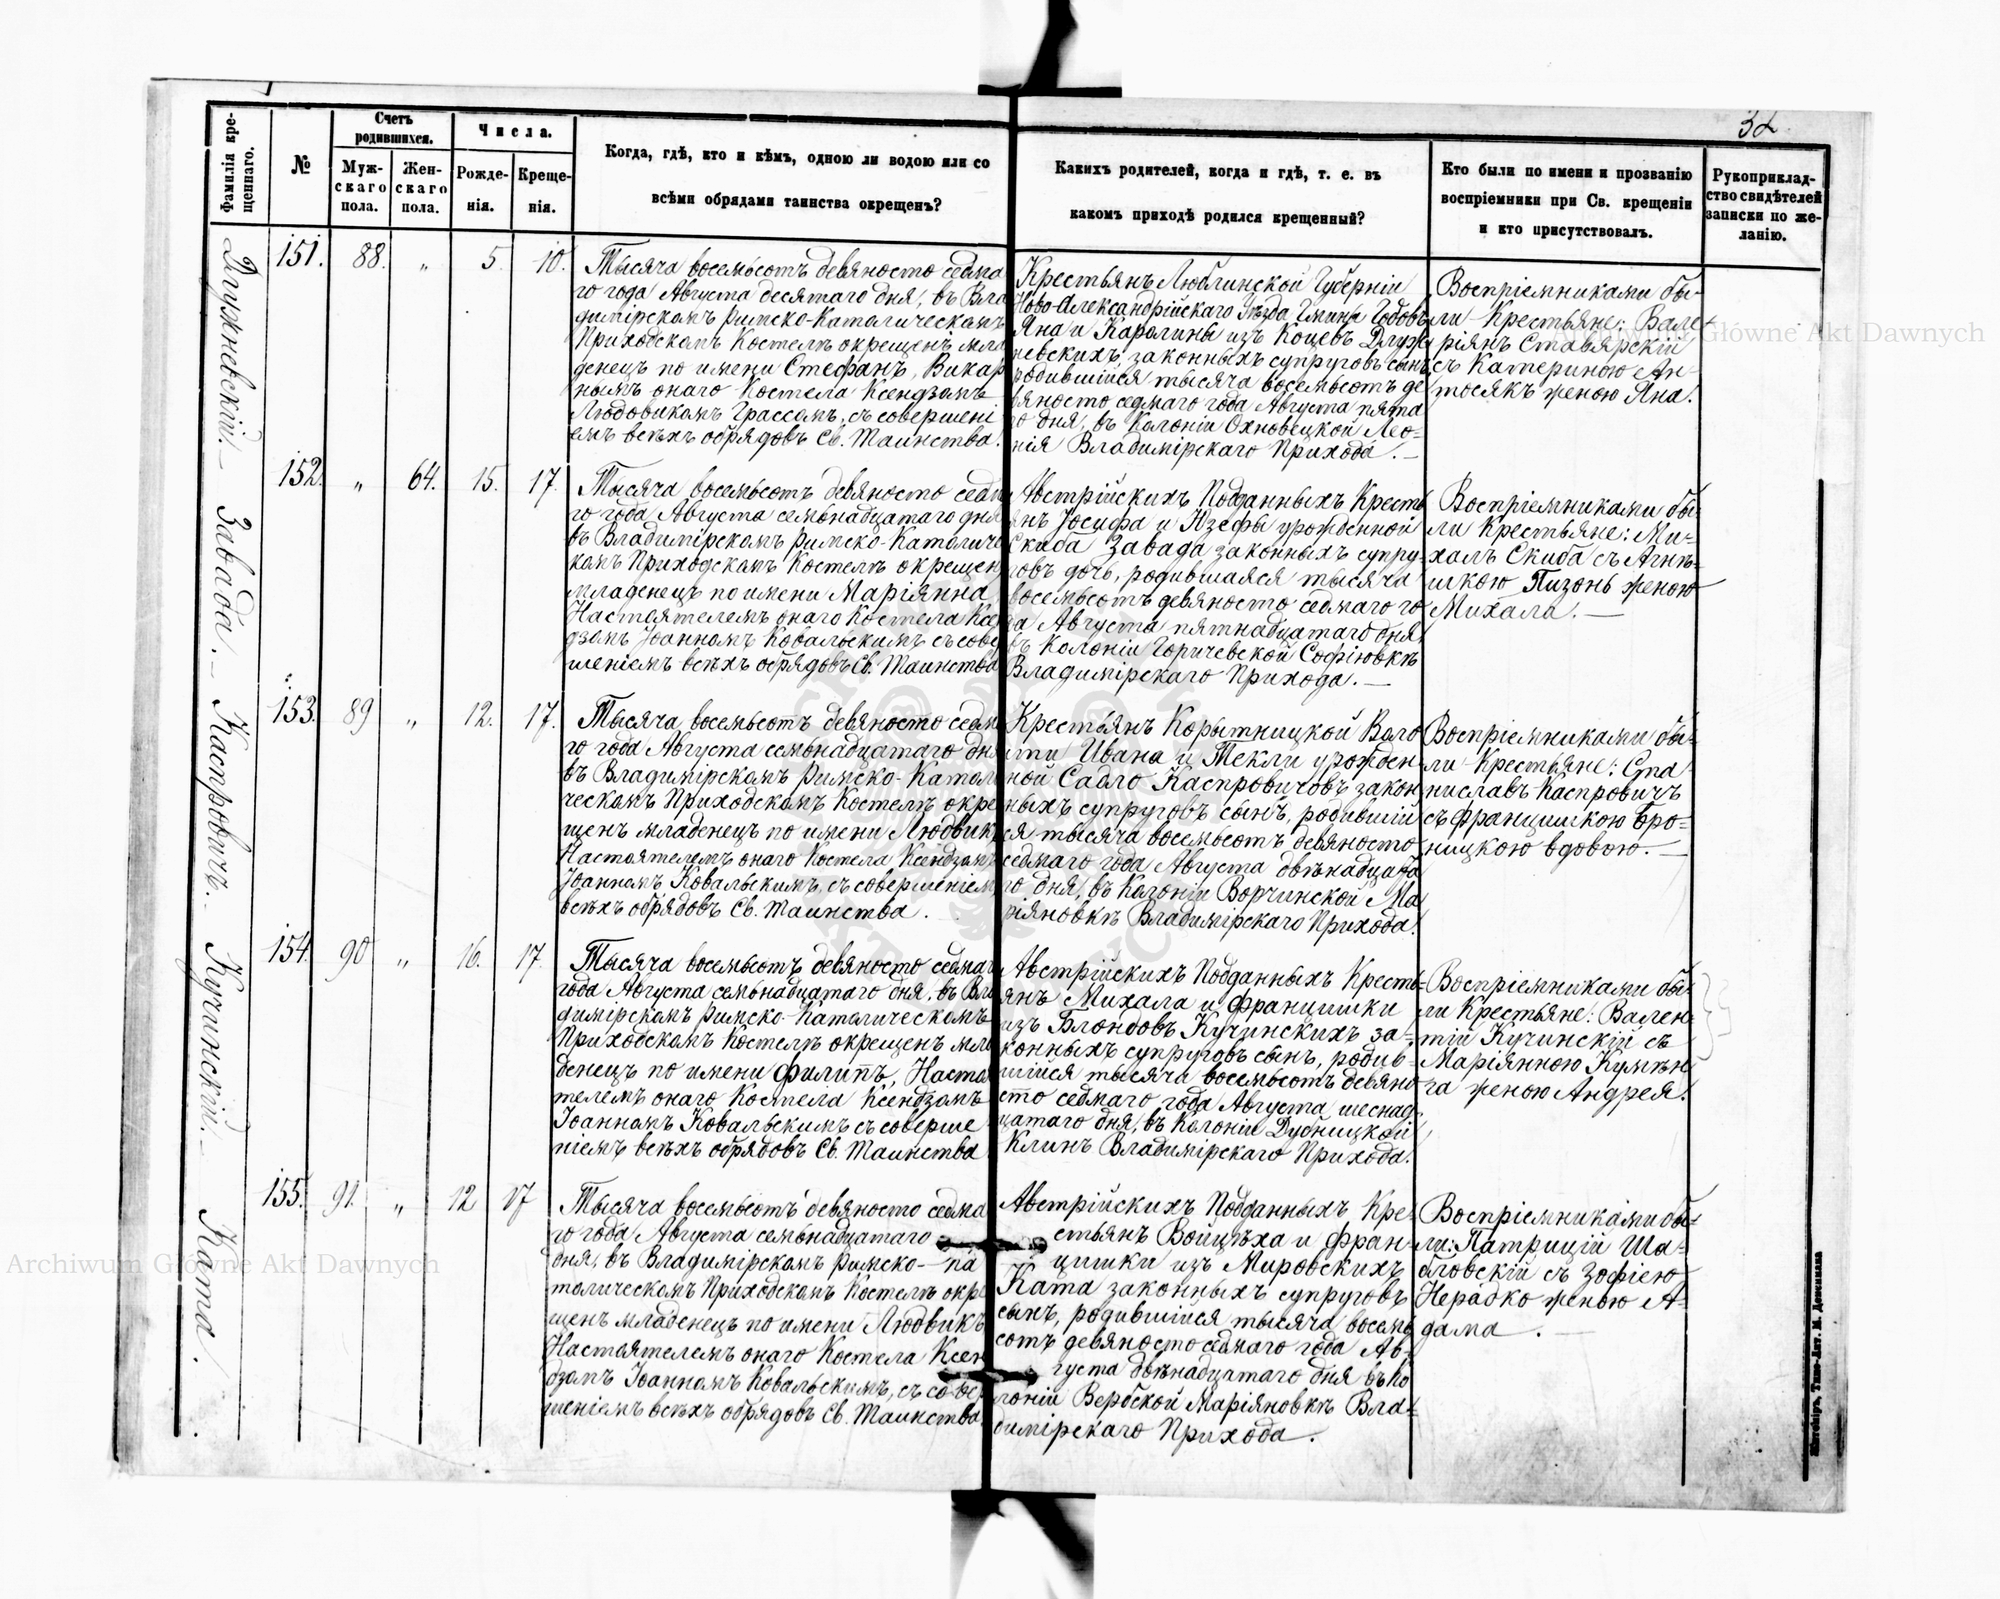 32
Фамилія кре-
щеннаго.
№
Счетъ
родившихся.
Муж-
скаго
пола.
Жен-
скаго
пола.
Числа.
Рожде-
нія.
Креще-
нія.
Когда, гдѣ, кто и кѣмъ, одною ли водою или со
всѣми обрядами таинства окрещенъ?
Какихъ родителей, когда и гдѣ, т. е. въ
какомъ приходѣ родился крещенный?
Кто были по имени и прозванію
воспріемники при Св. крещеніи
и кто присутствовалъ.
Рукоприклад-
ство свидѣтелей
записки по же-
ланію.
Длужневскій.
151. 88. „ 5. 10.
Тысяча восемьсотъ девяносто седма
го года Августа десятаго дня, въ Вла
димірскомъ Римско-Католическомъ
Приходскомъ Костелѣ окрещенъ мла
денецъ по имени Стефанъ, Викар
нымъ онаго Костела Ксендзомъ
Людовикомъ Грассомъ, съ совершені
емъ всѣхъ обрядовъ Св. Таинства.
Крестьянъ Люблинской Губерніи
Ново-Александрійскаго Уѣзда Гмины Годовъ
Яна и Каролины изъ Коцевъ Длуж
невскихъ, законныхъ супруговъ сынъ,
родившійся тысяча восемьсотъ де
вяносто седмаго года Августа пята
го дня, въ Колоніи Охновецкой Лео-
нія Владимірскаго Прихода.—
Воспріемниками бы-
ли Крестьяне: Вале-
ріянъ Ставярскій
съ Катериною Ан-
тосякъ женою Яна.
Завада.—
152. „ 64. 15. 17.
Тысяча восемьсотъ девяносто седм
го года Августа семьнадцатаго дня
въ Владимірскомъ Римско-Католиче
комъ Приходскомъ Костелѣ окрещен
младенецъ по имени Маріянна,
Настоятелемъ онаго Костела Ксен
дзомъ Іоанномъ Ковальскимъ съ сове
шеніемъ всѣхъ обрядовъ Св. Таинства
Австрійскихъ Подданныхъ Кресть
янъ Іосифа и Юзефы урожденной
Скиба Завада законныхъ супру
говъ дочь, родившаяся тысяча
восемьсотъ девяносто седмаго го
да Августа пятнадцатаго дня
въ Колоніи Горичевской Софіювкѣ
Владимірскаго Прихода.—
Воспріемниками бы-
ли Крестьяне: Ми-
халъ Скиба съ Агнѣ-
шкою Пизонь женою
Михала.—
Каспровичъ.
153. 89 „ 12. 17.
Тысяча восемьсотъ девяносто седм
го года Августа семьнадцатаго дня
въ Владимірскомъ Римско-Католи
ческомъ Приходскомъ Костелѣ окре
щенъ младенецъ по имени Людвикъ
Настоятелемъ онаго Костела Ксендзомъ
Іоанномъ Ковальскимъ, съ совершеніем
всѣхъ обрядовъ Св. Таинства.
Крестьянъ Корытницкой Воло
сти Ивана и Текли урожден
ной Садло Каспровичовъ закон
ныхъ супруговъ сынъ, родившій
ся тысяча восемьсотъ девяносто
седмаго года Августа двѣнадцата
го дня, въ Колоніи Ворчинской Ма
ріяновкѣ Владимірскаго Прихода.
Воспріемниками бы-
ли Крестьяне: Ста-
ниславъ Каспровичъ
съ Францишкою Бро-
ницкою вдовою.—
Кучинскій.—
154. 90 „ 16. 17.
Тысяча восемьсотъ девяносто седмаго
года Августа семьнадцатаго дня, въ Вла
димірскомъ Римско-Католическомъ
Приходскомъ Костелѣ окрещенъ мла
денецъ по имени Филипъ, Настоя
телемъ онаго Костела Ксендзомъ
Іоанномъ Ковальскимъ съ соверше
ніемъ всѣхъ обрядовъ Св. Таинства
Австрійскихъ Подданныхъ Кресть-
янъ Михала и Францишки
изъ Блондовъ Кучинскихъ за-
конныхъ супруговъ сынъ, родив-
шійся тысяча восемьсотъ девяно
сто седмаго года Августа шеснад-
цатаго дня, въ Колоніи Дубницкой
Клинъ Владимірскаго Прихода.
Воспріемниками бы-
ли Крестьяне: Вален-
тій Кучинскій съ
Маріянною Кумѣн-
га женою Андрея.
Ката.
155. 91. „ 12 17
Тысяча восемьсотъ девяносто седма
го года Августа семьнадцатаго
дня, въ Владимірскомъ Римско-Ка
толическомъ Приходскомъ Костелѣ окре
щенъ младенецъ по имени Людвикъ
Настоятелемъ онаго Костела Ксен
дзомъ Іоанномъ Ковальскимъ, съ совер
шеніемъ всѣхъ обрядовъ Св. Таинства
Австрійскихъ Подданныхъ Кре-
стьянъ Войцѣха и Фран-
цишки изъ Мировскихъ
Ката законныхъ супруговъ
сынъ, родившійся тысяча восемь
сотъ девяносто седмаго года Ав-
густа двѣнадцатаго дня въ Ко
лоніи Вербской Маріяновкѣ Вла-
димірскаго Прихода.
Воспріемниками бы-
ли: Патрицій Ша-
бловскій съ Зофіею
Нерадко женою А-
дама.—
Житоміръ, Типо-Лит. М. Дененмана
Archiwum Główne Akt Dawnych
Archiwum Główne Akt Dawnych